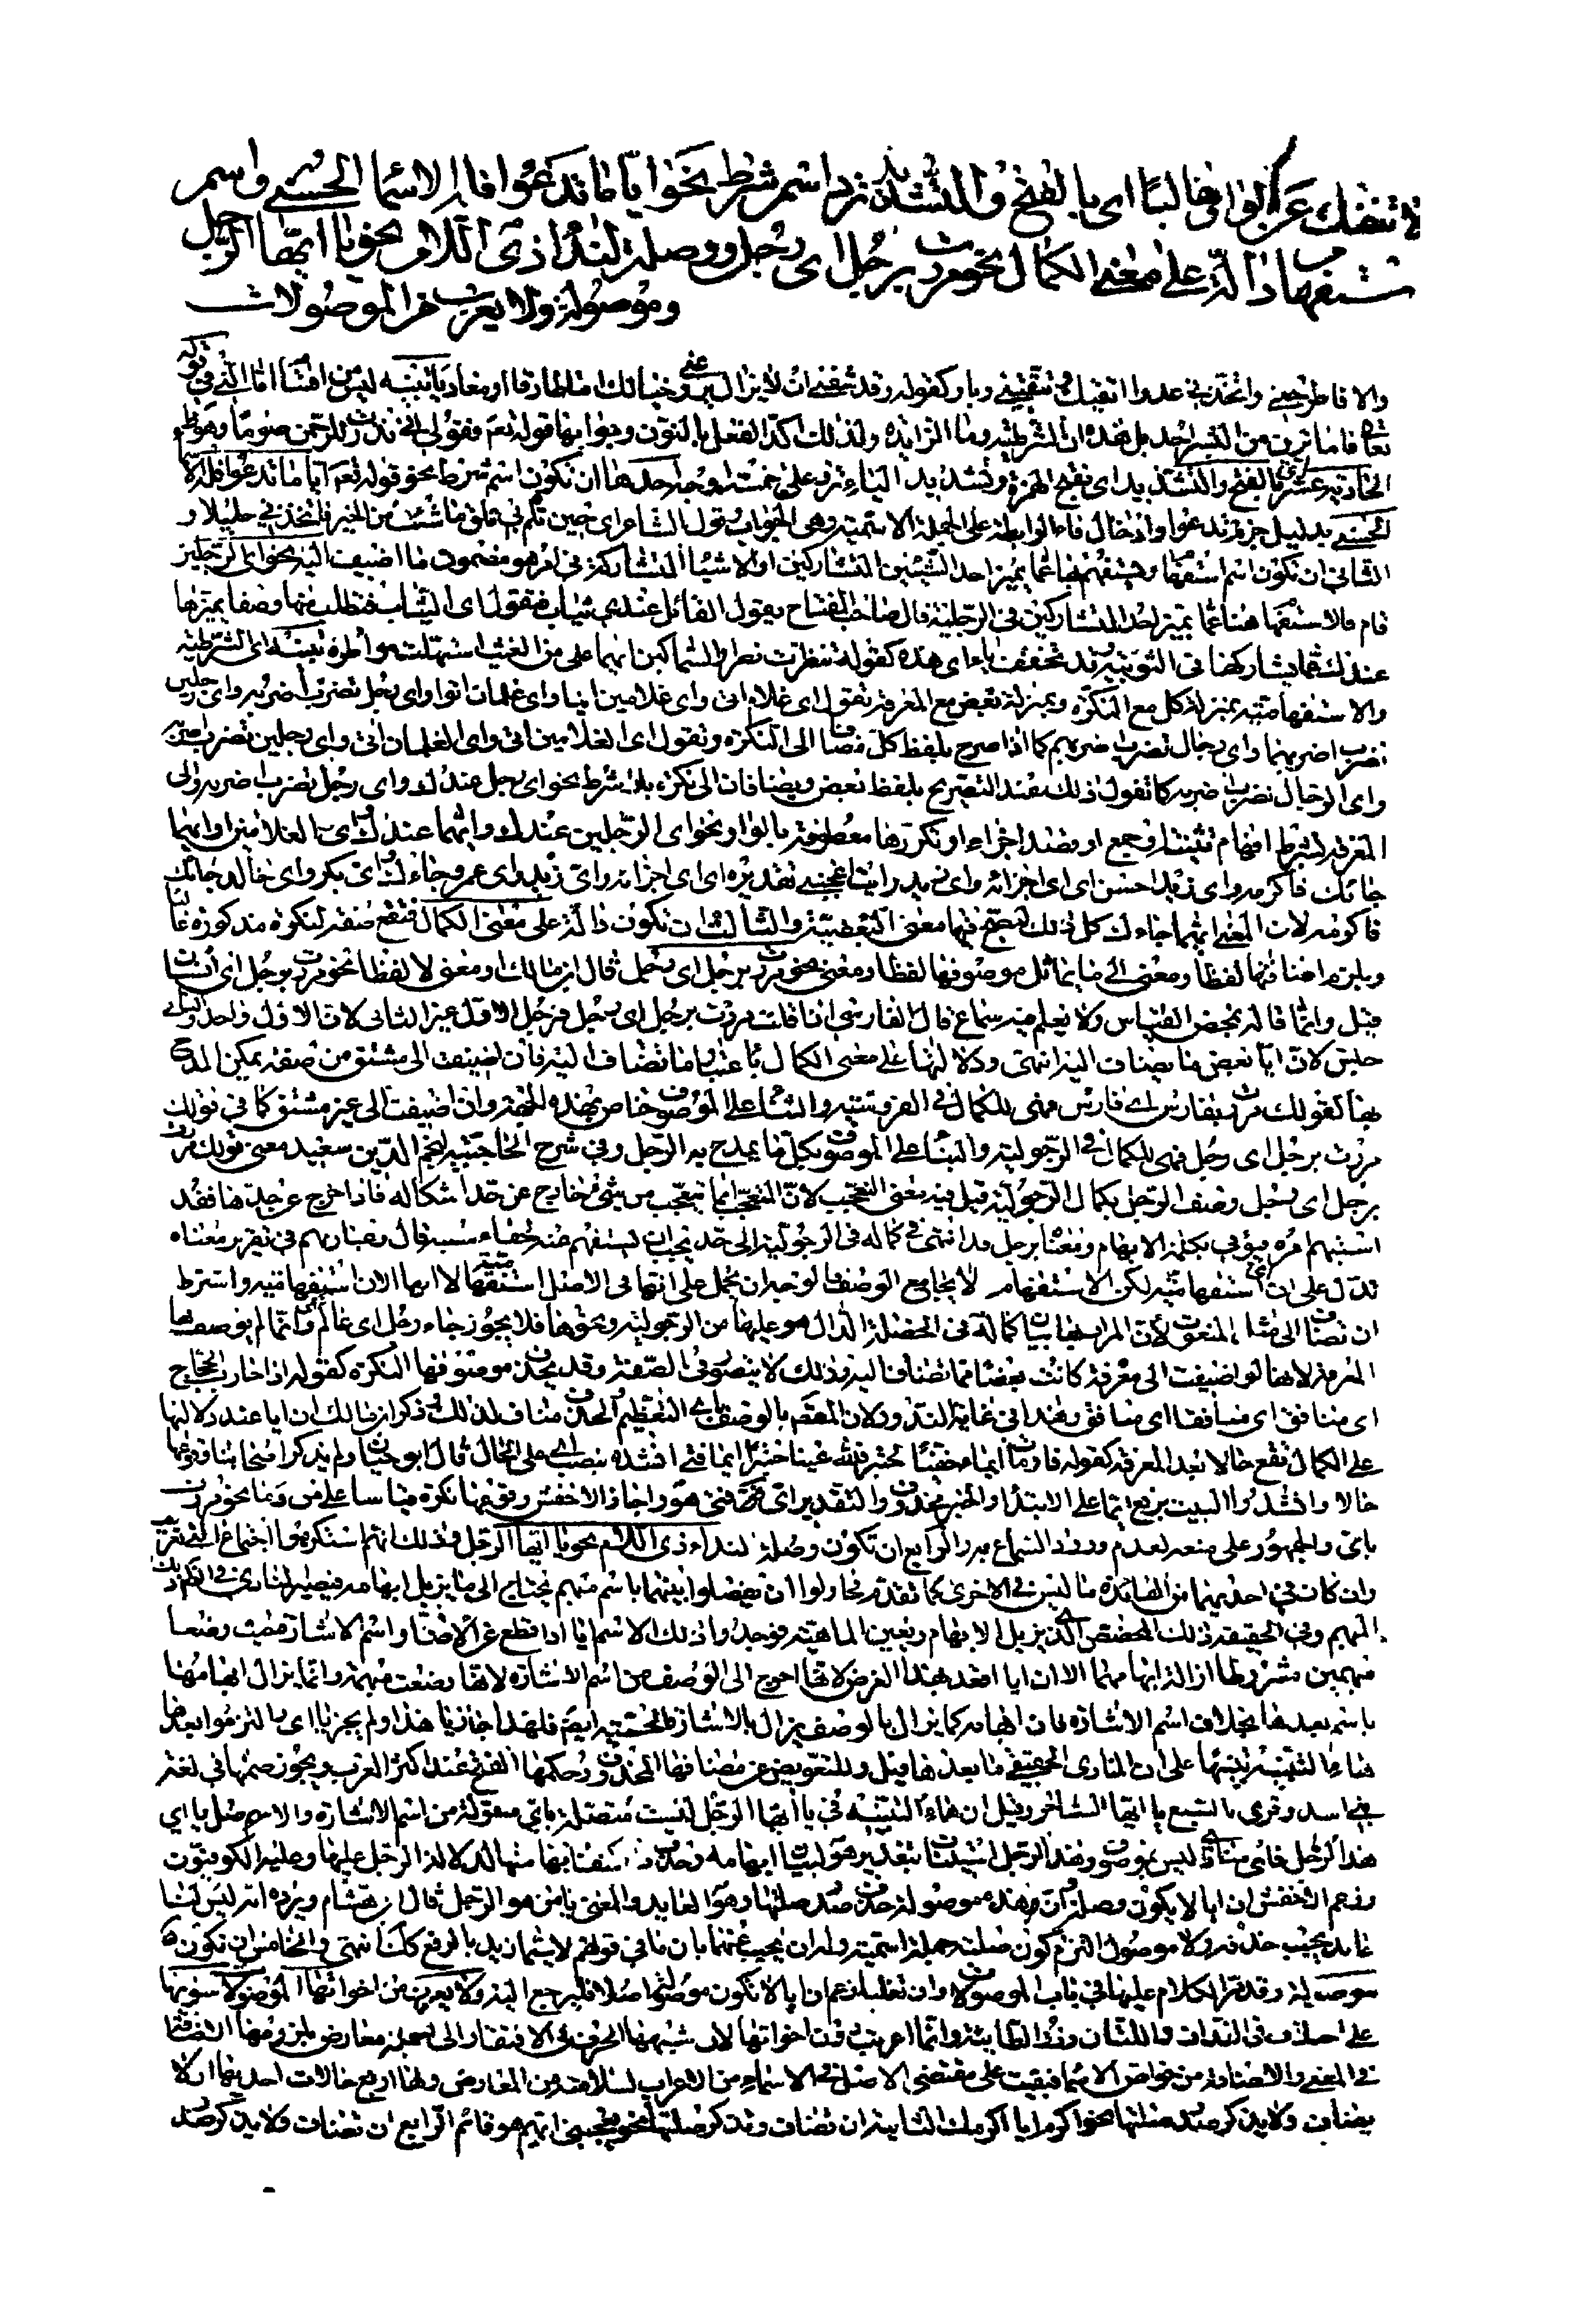 لا تنفك عن الواو غالبًا اى بالفتح والتشديد ترد اسم شرط نحو ايّا ما تدعوا فله الاسماء الحسنى واسم
استفهام ودالّة على معنى الكمال نحو مررت برجل اى رجل ووصلة لنداء ذى اللام نحو يا ايّها الرّجل
وموصولة ولا يعرب من الموصولات
والا فاطرحنى واتخذنى عدوا اتقيك وتتقينى
تعالى فاما ترين من البشر احدا بل هذه ان الشرطية وما الزائدة ولذلك اكد الفعل بالنون وجوابها قوله تعالى فقولى انى نذرت للرحمن صوما
الحادية عشر اى بالفتح والتشديد اى بفتح الهمزة وتشديد الياء ترد على خمسة اوجه احدها ان تكون اسم شرط نحو قوله تعالى ايا ما تدعوا فله الاسماء
الحسنى بدليل جزم تدعوا وادخال فاء الرابطة على الجملة الاسمية وهى الجواب
الثانى ان تكون اسم استفهام ويستفهم بها عما يميز احد الشيئين المتشاركين او الاشياء المتشاركة فى امر هو مضمون ما اضيفت اليه نحو اى الرجلين
قام فالاستفهام هنا عما يميز احد المتشاركين فى الرجلية قال صاحب المفتاح يقول القائل عندى ثياب فتقول اى الثياب فتطلب منها وصفا يميزها
عندك عما يشاركها فى الثوبية وقد تخفف ياء اى هذه كقوله تنظرت نصرا والسماكين ايهما على من الغيث استهلت مواطره تنبيه اى الشرطية
والاستفهامية بمنزلة كل مع النكرة وبمنزلة بعض مع المعرفة تقول اى غلام اتى واى غلامين اتيا واى غلمان اتوا واى رجل تضرب اضربه واى رجلين
تضرب اضربهما واى رجال تضرب اضربهم كما اذا صرح بلفظ كل مضافا الى النكرة وتقول اى الغلامين اتى واى الغلمان اتى واى الرجلين تضرب اضربه
واى الرجال تضرب اضربه كما تقول ذلك عند التصريح بلفظ بعض ويضافان الى نكرة بلا شرط نحو اى رجل عندك واى رجل تضرب اضربه والى
المعرفة بشرط افهام تثنية او جمع او قصد اجزاء او تكررها معطوفة بالواو نحو اى الرجلين عندك وايهما عندك
جائك فاكرمه واى زيد احسن اى اى اجزائه
فاكرمه لان المعنى ايهما جاءك كل ذلك لتصحيح فيها معنى التبعيضية والثالث ان تكون دالة على معنى الكمال فتقع صفة لنكرة مذكورة غالبا
ويلزم اضافتها لفظا ومعنى الى ما يماثل موصوفها لفظا ومعنى نحو مررت برجل اى رجل قال ابن مالك او معنى لا لفظا نحو مررت برجل اى انسان
قيل وانما قاله بمحض القياس ولا يعلم فيه سماع قال الفارسى اذا قلت مررت برجل اى رجل فرجل الاول غير الثانى لان الاول واحد والثانى
جنس لان ايا بعض ما يضاف اليه انتهى ودلالتها على معنى الكمال باعتبار ما تضاف اليه فان اضيفت الى مشتق من صفة يمكن المدح
بها كقولك مررت بفارس اى فارس فهى للكمال فى الفروسية والثناء على الموصوف خاص بهذه الجهة وان اضيفت الى غير مشتق كما فى قولك
مررت برجل اى رجل فهى للكمال فى الرجولية والثناء على الموصوف بكل ما يمدح به الرجل وفى شرح الحاجبية لنجم الدين سعيد معنى قولك مررت
برجل اى رجل وصف الرجل بكمال الرجولية قيل فيه معنى التعجب لان التعجب انما يتعجب من شىء خارج عن حد اشكاله فاذا خرج عن حدها فقد
استبهم امره فيؤتى بكلمة الابهام ومعناه برجل قد انتهى فى كماله فى الرجولية الى حد يجب ان يستفهم عنه لخفاء سببه قال وعبارتهم فى تقرير معناه
تدل على ان اى استفهامية لكن الاستفهام لا يجامع الوصف فالوجه ان يحمل على انها فى الاصل استفهامية لا انها الان استفهامية واشترط
ان تضاف الى مثل المنعوت لان المراد بها بيان كماله فى الخصلة الدال هو عليها من الرجولية ونحوها فلا يجوز جاء رجل اى عالم وانما لم يوصف بها
المعرفة لانها لو اضيفت الى معرفة كانت بعضا مما تضاف اليه وذلك لا يتصور فى الصفة وقد يحذف موصوفها النكرة كقوله اذا حارب الحجاج
اى منافق اى منافقا اى منافق وهذا فى غاية الندور لان المقصود بالوصف باى التعظيم والحذف مناف لذلك ذكر ابن مالك ان ايا عند دلالتها
على الكمال تقع حالا بعد المعرفة كقوله فاومأت ايماء خفيا لحبتر فلله عينا حبتر ايما فتى انشده بنصب اى على الحال قال ابو حيان ولم يذكر اصحابنا وقوعها
حالا وانشدوا البيت برفع ايما على الابتداء والخبر محذوف والتقدير اى فتى هو واجاز الاخفش وقوعها نكرة قياسا على من وما نحو مررت
باى والجمهور على منعه لعدم ورود السماع به والرابع ان تكون وصلة لنداء ذى اللام نحو يا ايها الرجل وذلك انهم استنكروا اجتماع التى تعريف
وان كان فى احديهما من الفائدة ما ليس فى الاخرى كما تقدم فحاولوا ان يفصلوا بينهما باسم مبهم يحتاج الى ما يزيل ابهامه فيصير المنادى فى الظاهر ذلك
المبهم وفى الحقيقة ذلك المخصص الذى يزيل الابهام ويعين الماهية فوجدوا ذلك الاسم ايا اذا قطع عن الاضافة واسم الاشارة حيث وضعا
مبهمين مشروطا ازالة ابهامهما الا ان ايا اقعد بهذا الغرض لانها احوج الى الوصف من اسم الاشارة لانها وضعت مبهمة وانما يزال ابهامها
باسم بعدها بخلاف اسم الاشارة فان ابهامه كما يزال بالوصف يزال بالاشارة الحسية ايضا فلهذا جاز يا هذا ولم يجز يا اى بل التزموا بعدها
هاء التنبيه تنبيها على ان المنادى الحقيقى ما بعدها قيل وللتعويض عن مضافها المحذوف وحكمها الفتح عند اكثر العرب ويجوز ضمها فى لغة
بنى اسد وقرى بالسبع يا ايه الساحر وقيل ان هاء التنبيه فى يا ايها الرجل ليست متصلة باى بل منقولة من اسم الاشارة والاصل يا اى
هذا الرجل فاى منادى ليس بموصوف وهذا الرجل استيناف بتقدير هو لبيان ابهامه وحذف ذا استغناء بها منها لدلالة الرجل عليها وعليه الكوفيون
وزعم الاخفش ان ايا لا يكون وصلة وان هذه موصولة حذف صدر صلتها وهو العايد والمعنى يا من هو الرجل قال ابن هشام ويرده انه ليس لنا
عايد يجب حذفه ولا موصول التزم كون صلته جملة اسمية وله ان يجيب عنهما بان ما فى قولهم لا سيما زيد بالرفع كذلك انتهى والخامس ان تكون
موصولة وقد مر الكلام عليها فى باب الموصولات وان ثعلبا زعم ان ايا لا تكون موصولا اصلا فليرجع اليه ولا يعرب من اخواتها الموصولات سواها
على اختلاف فى اللذان واللتان وذو الطائية وانما اعربت دون اخواتها لان شبهها الحرف فى الافتقار الى جملة معارض بلزومها الاضافة
فى المعنى والاضافة من خواص الاسماء فبقيت على مقتضى الاصل فى الاسماء من الاعراب لسلامته من المعارض ولها اربع حالات احديها ان لا
يضاف ولا يذكر صدر صلتها نحو اكرم ايا اكرمك الثانية ان تضاف وتذكر صدر صلتها نحو يعجبنى ايهم هو قائم الرابع ان تضاف ولا يذكر صدر